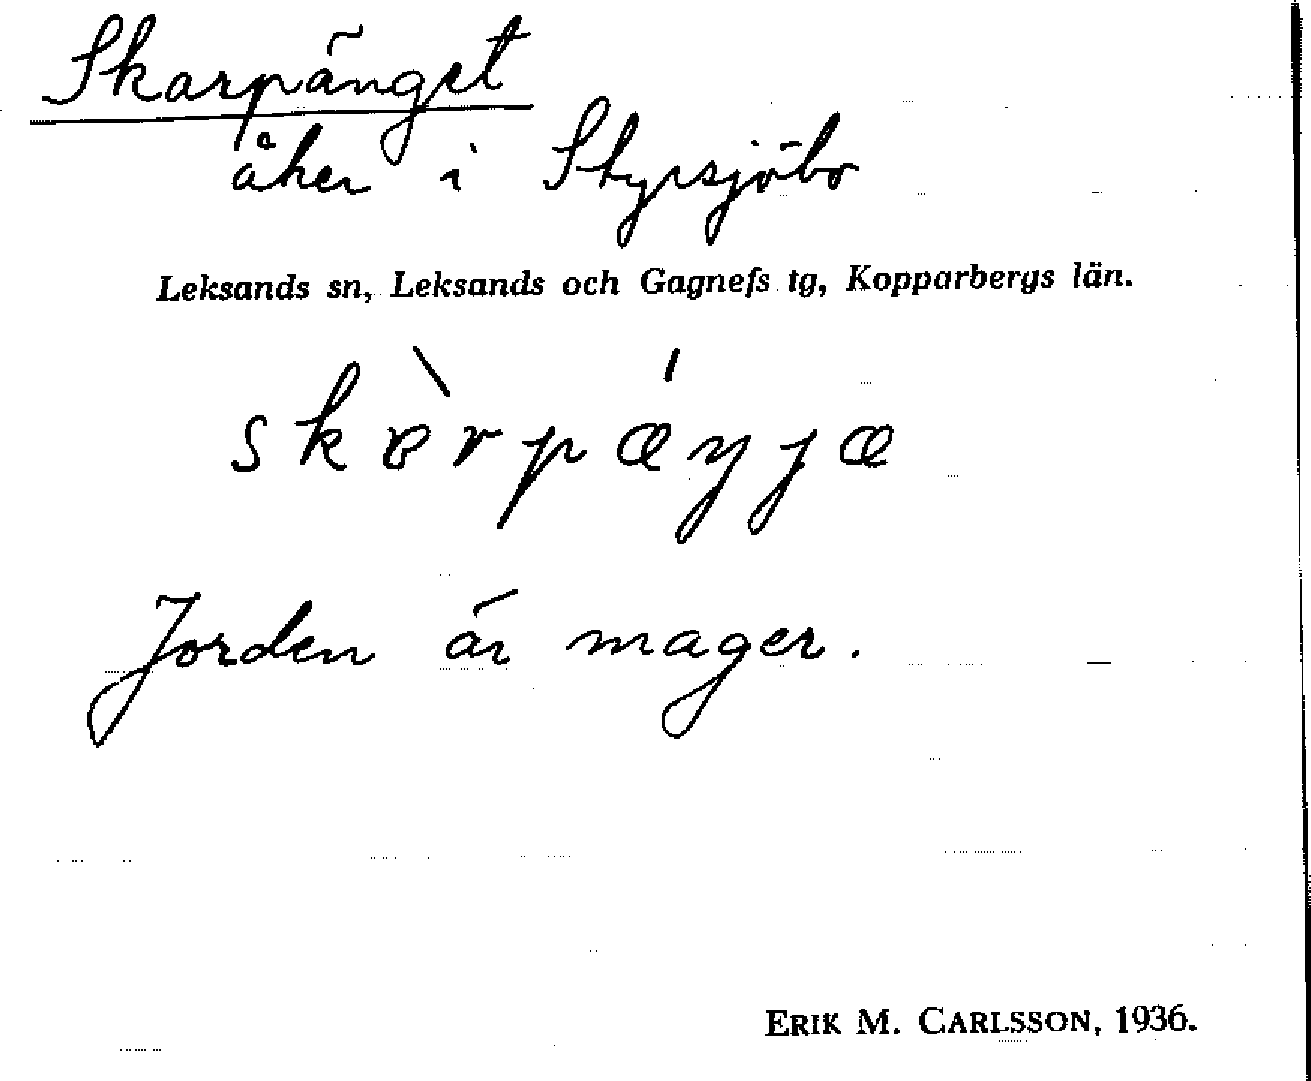 Skarpänget
åker i Styrsjöbo
Leksands sn, Leksands och Gagnefs tg, Kopparbergs län.
Jorden är mager.
ERIK M. CARLSSON, 1936.